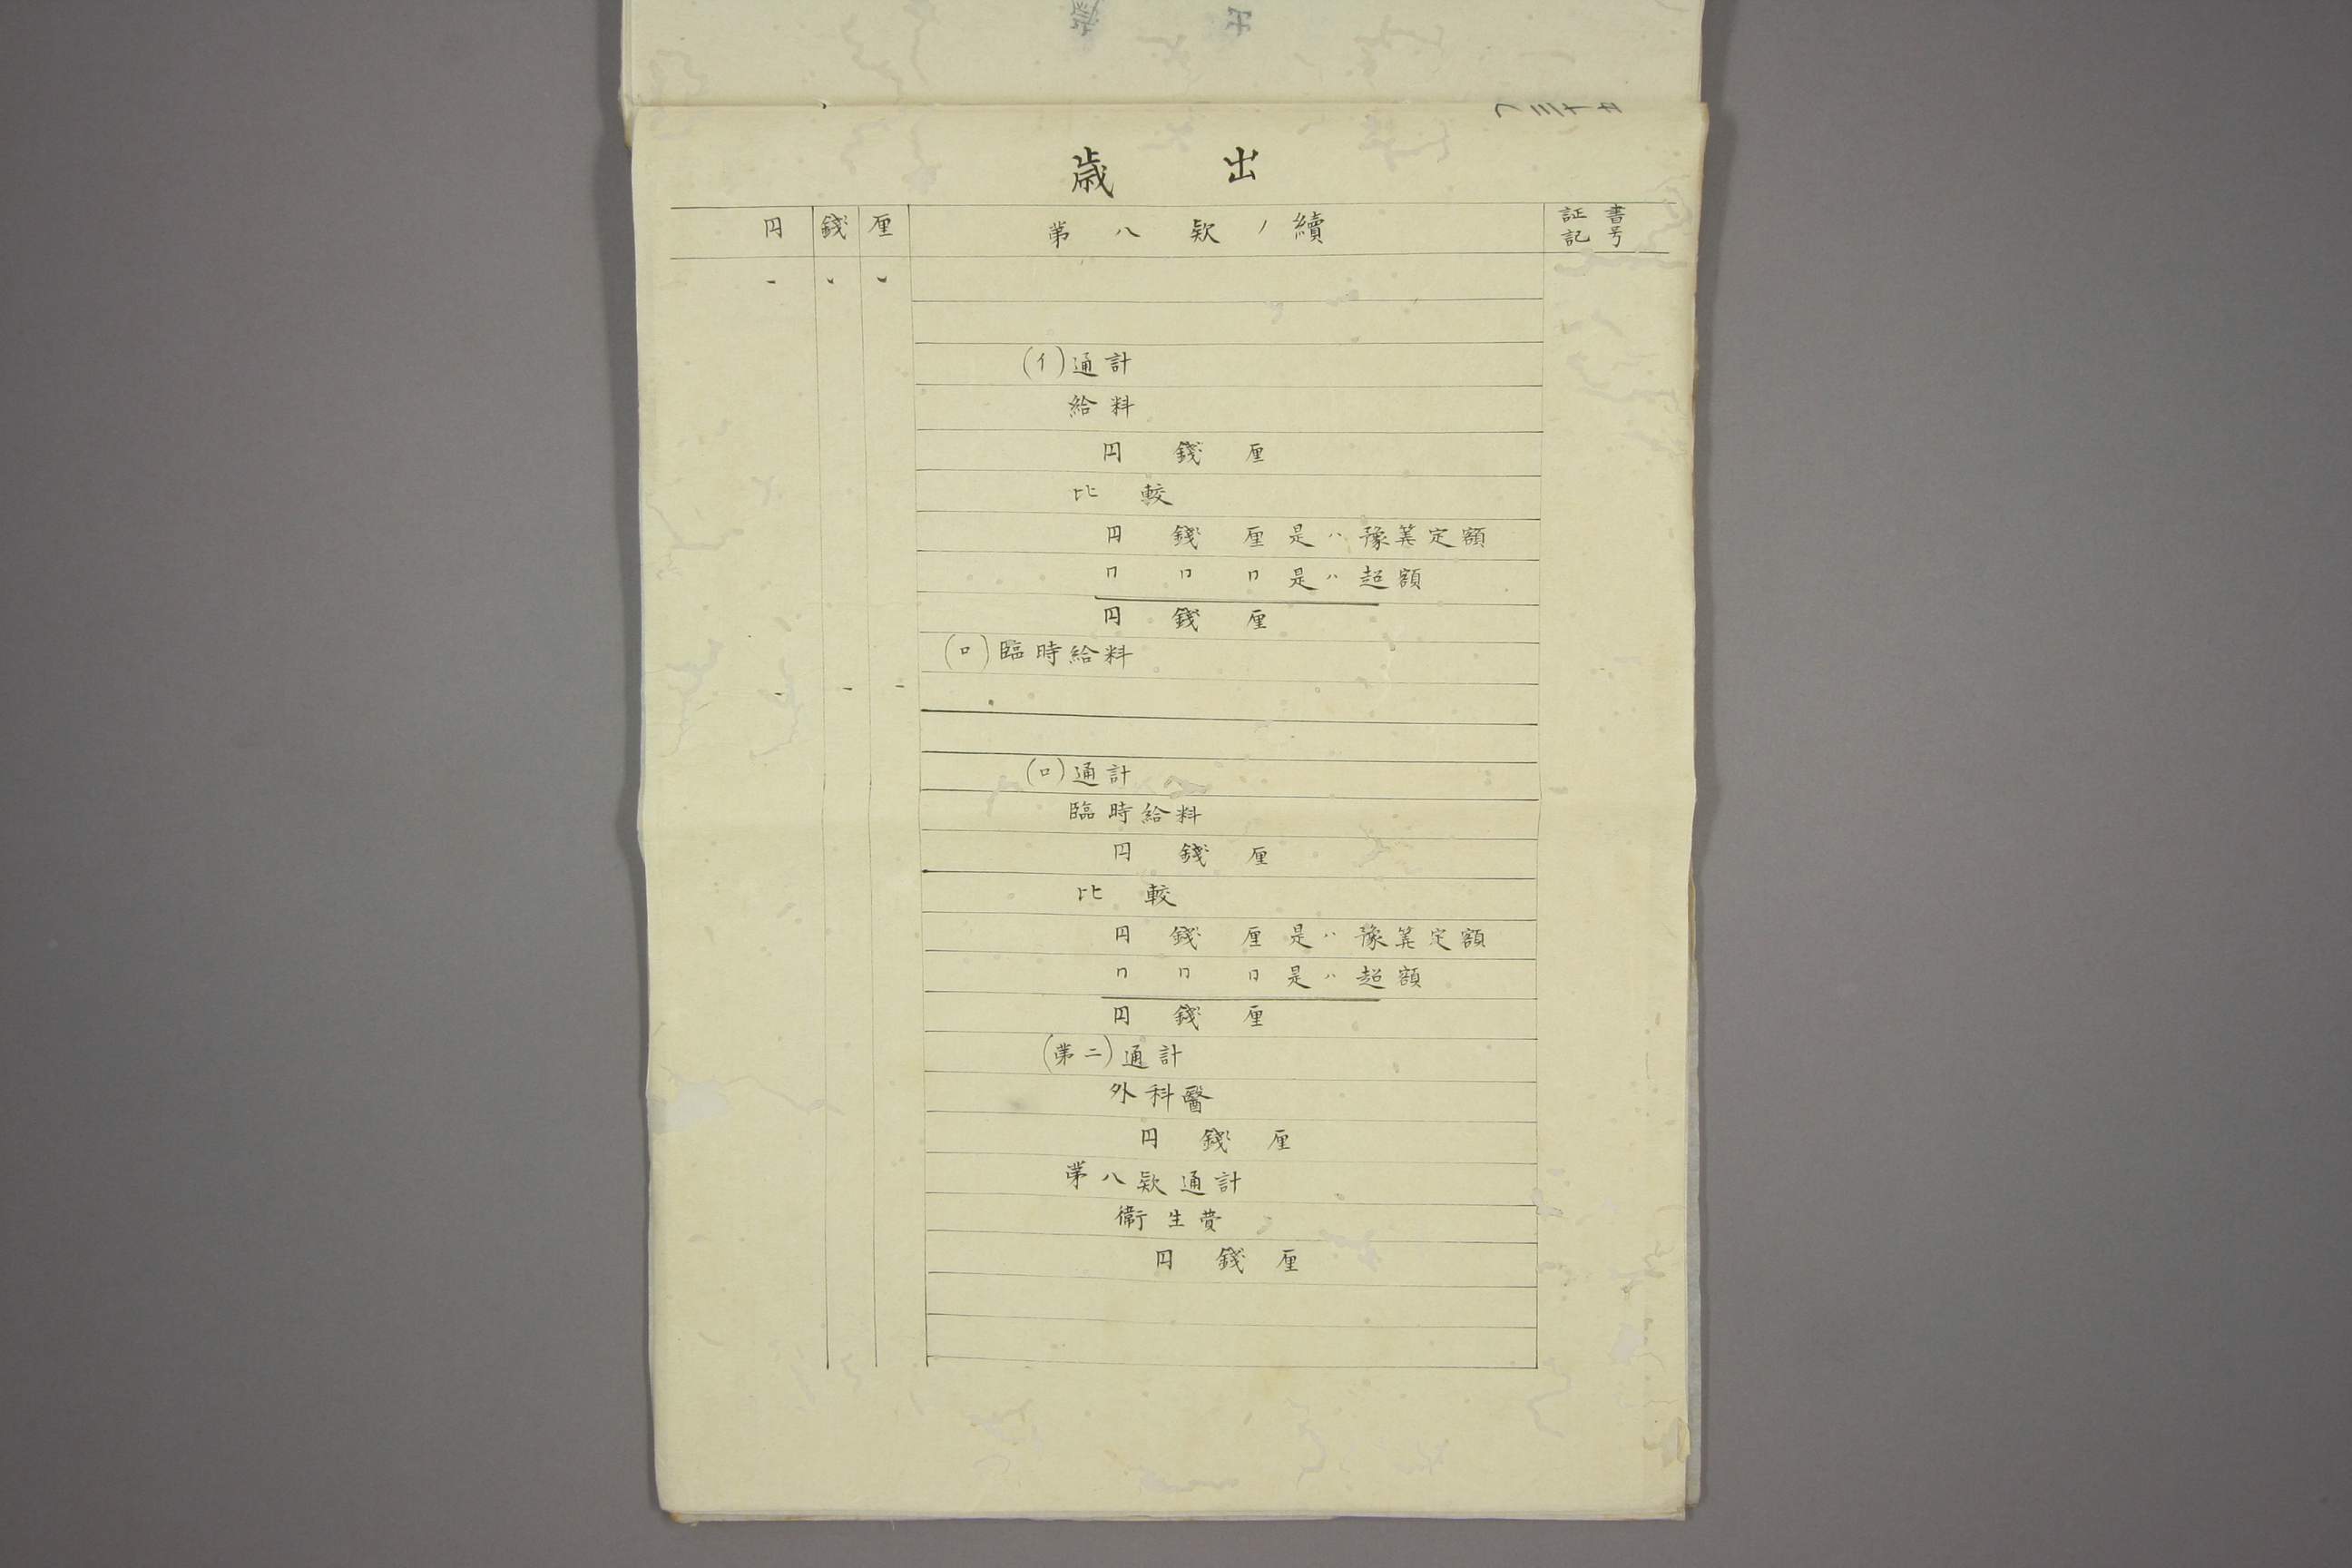 歳出
円 錢 厘 第八欵ノ續 証書記号
(イ)通計
給料
円 錢 厘
比較
円 錢 厘 是ハ豫筭定額
〃 〃 〃 是ハ超額
円 錢 厘
(ロ)臨時給料
(ロ)通計
臨時給料
円 錢 厘
比較
円 錢 厘 是ハ豫筭定額
〃 〃 〃 是ハ超額
円 錢 厘
(第二)通計
外科醫
円 錢 厘
第八欵通計
衛生費
円 錢 厘